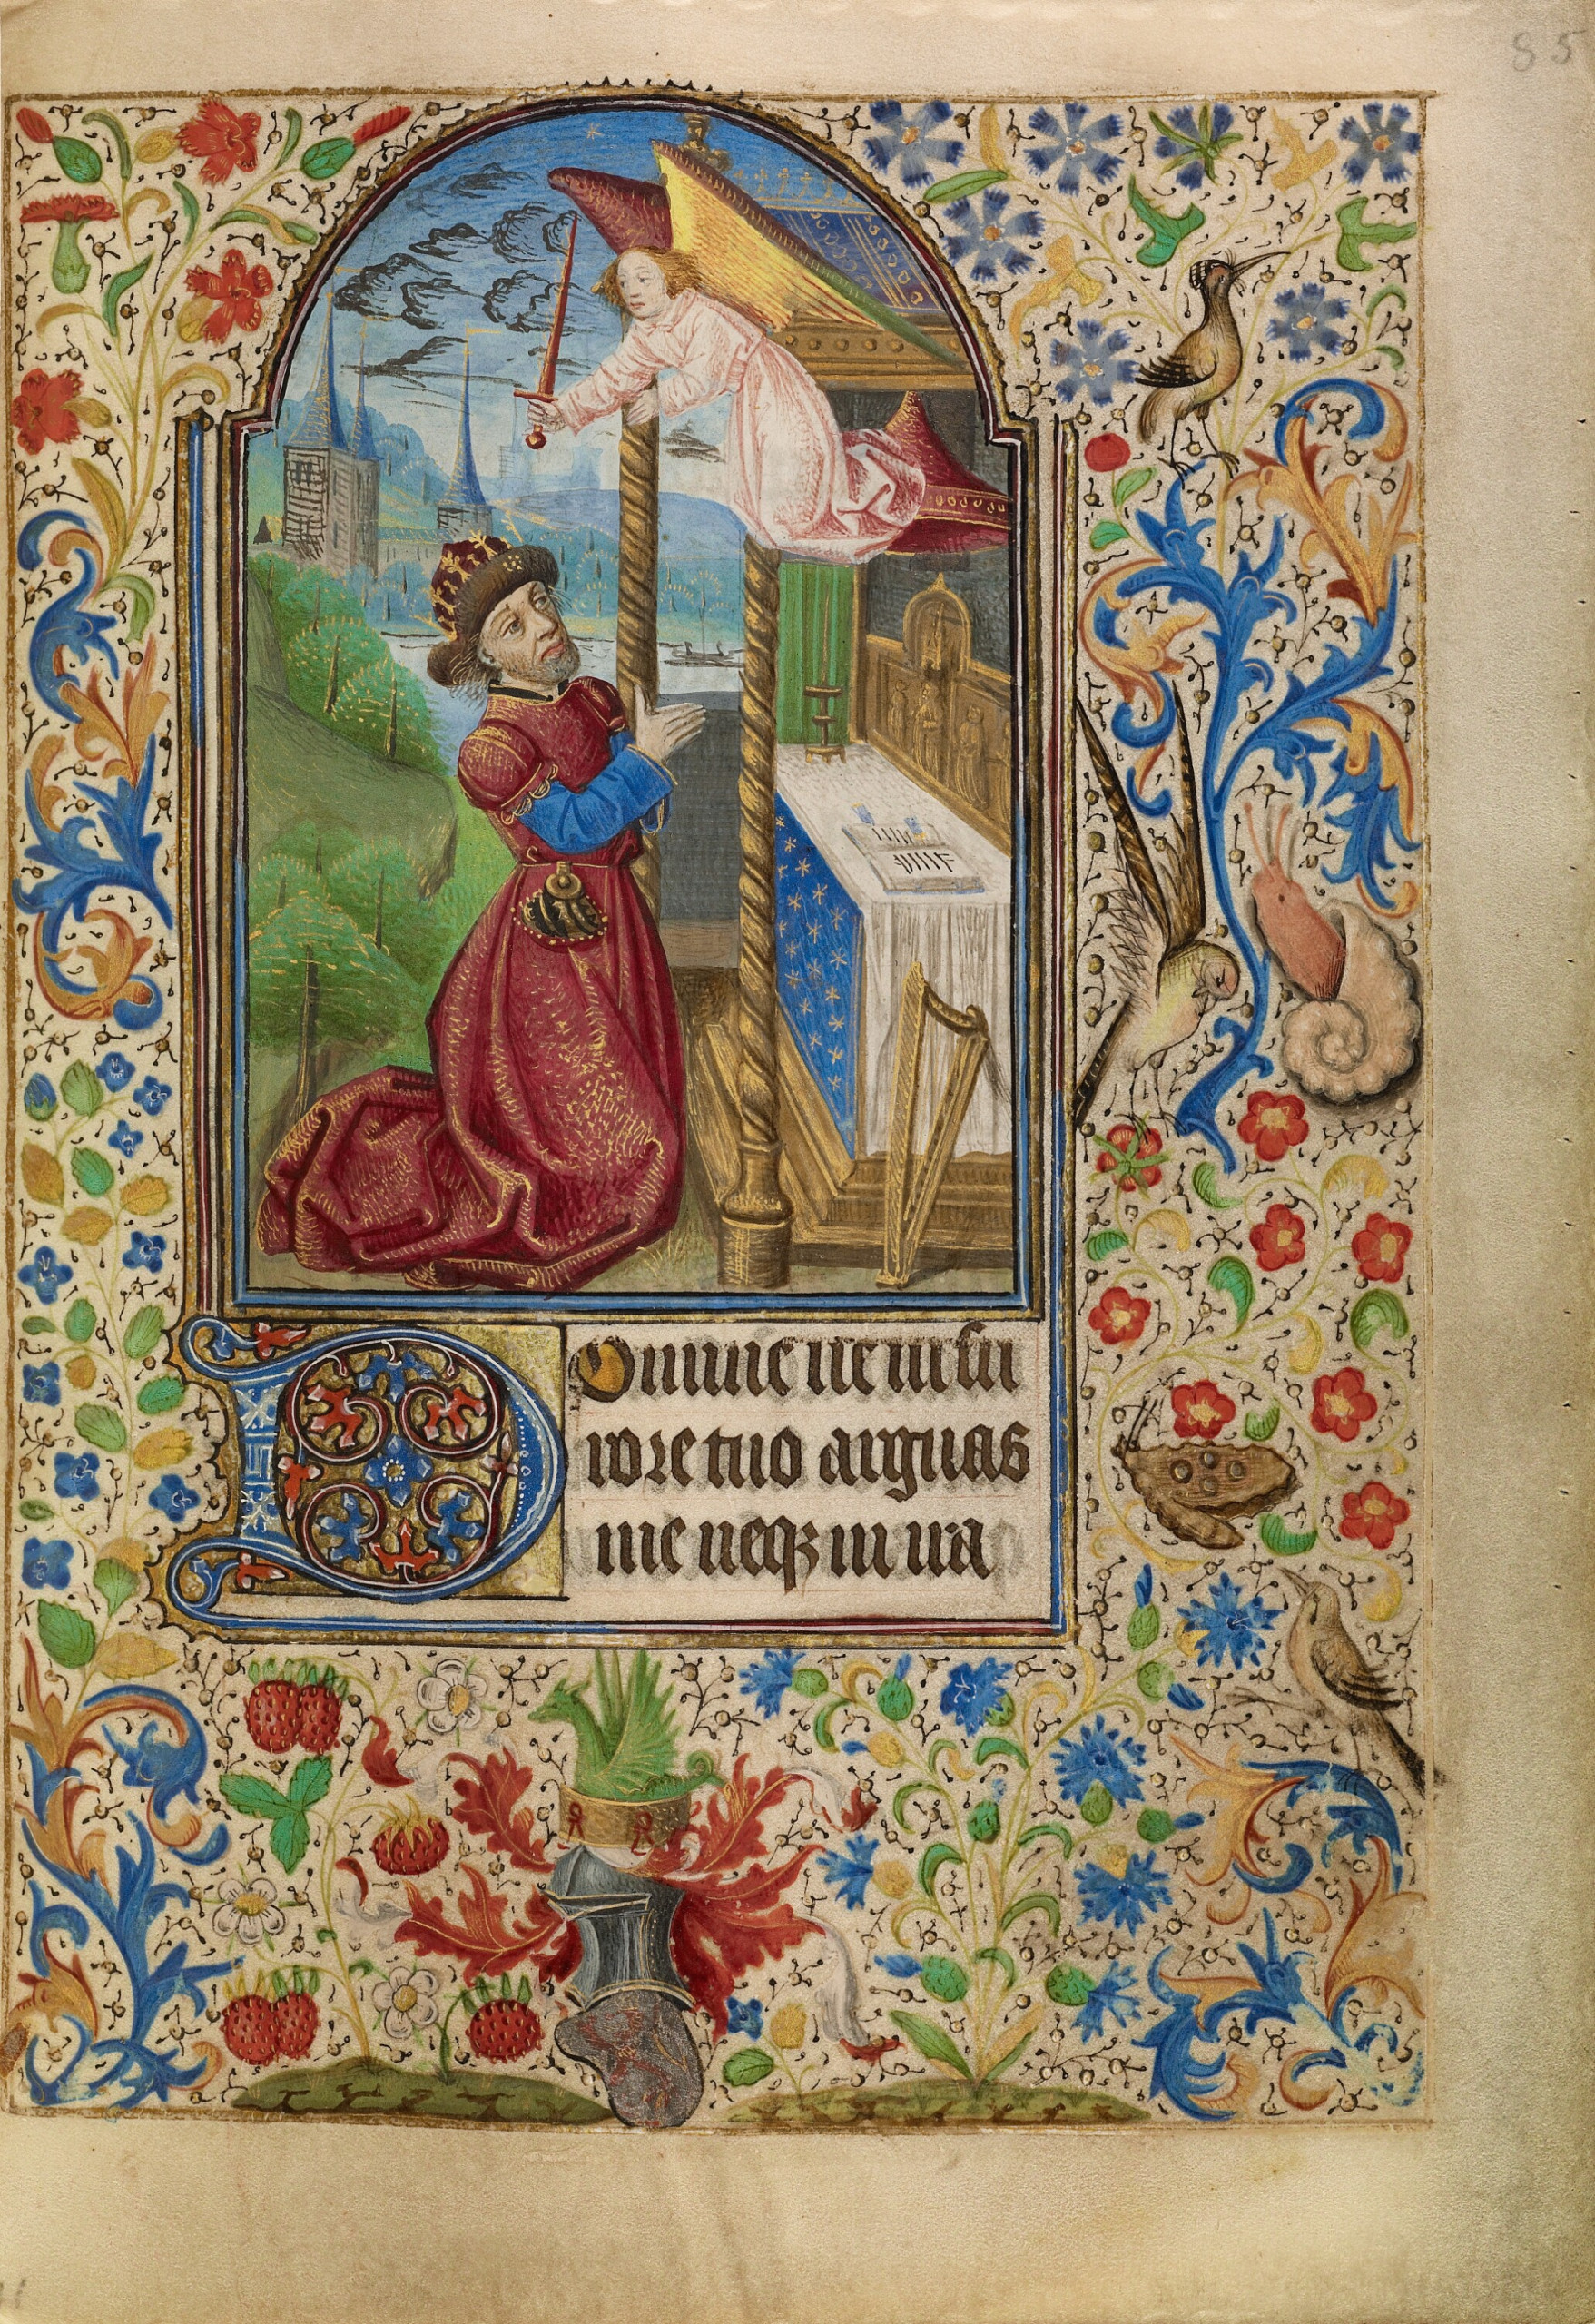 85
Domine ne in fu
rore tuo arguas
me neq3 in ira